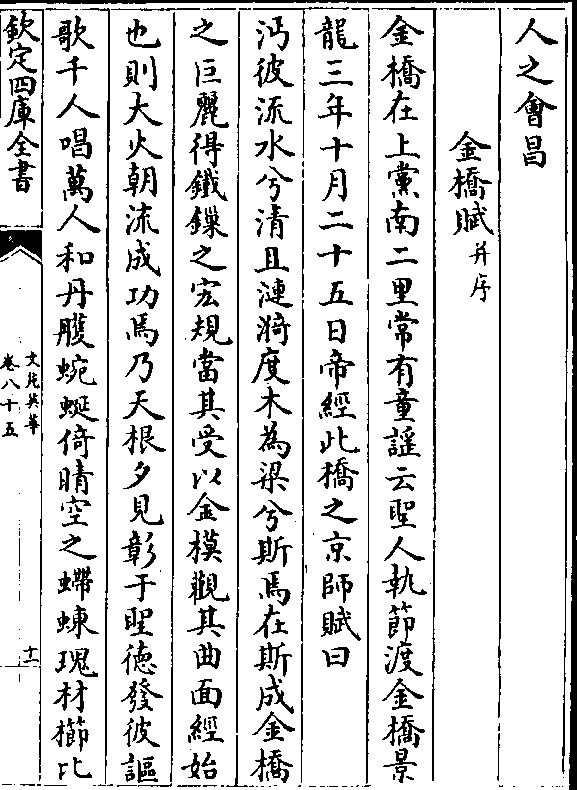 人之會昌
金橋賦并序
金橋在上黨南二里常有童謡云聖人執節渡金橋景
龍三年十月二十五日帝經此橋之京師賦曰
沔彼流水兮清且漣漪度木為梁兮斯焉在斯成金橋
之巨麗得鐵鏁之宏規當其受以金模觀其曲面經始
也則大火朝流成功焉乃天根夕見彰于聖徳發彼謳
歌千人唱萬人和丹雘蜿蜒倚晴空之螮蝀瑰材櫛比
欽定四庫全書
文苑英華
卷八十五
十一